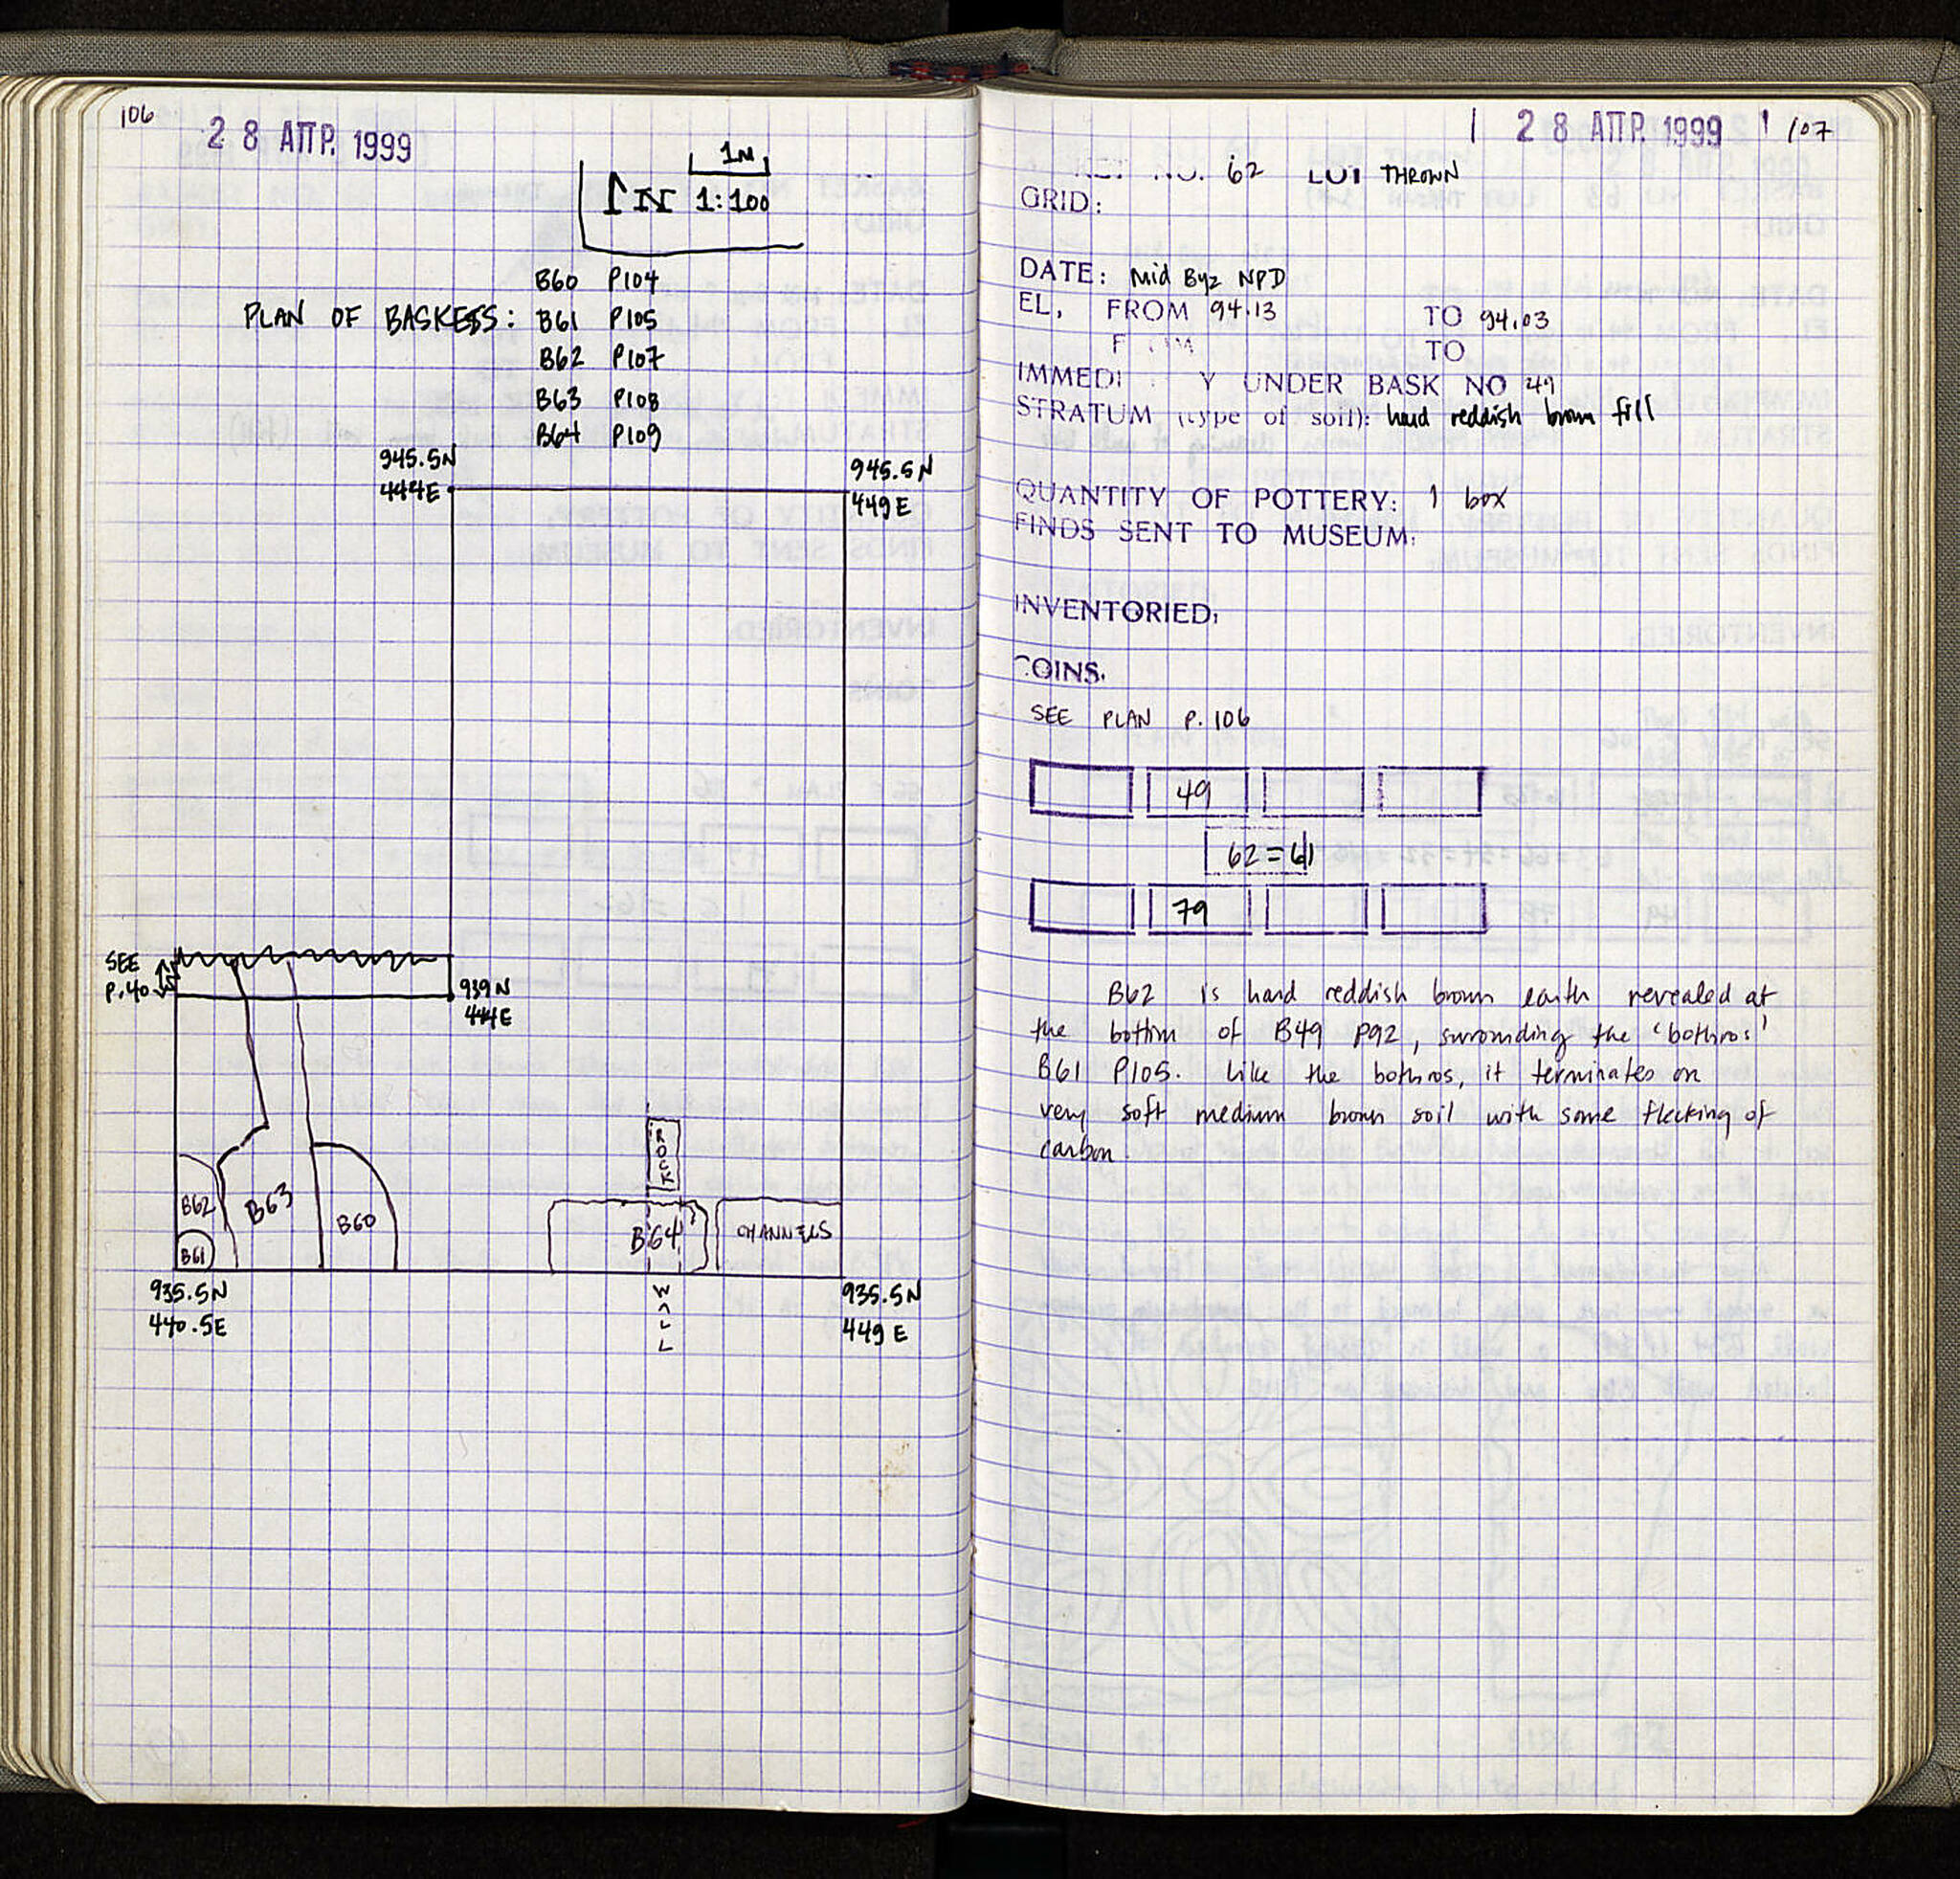 106
28 ΑΠΡ. 1999
1M
N 1:100
B60 P104
PLAN OF BASKESS: B61 P105
B62 P107
B63 P108
B64 P109
945.5N
444E
945.5N
449E
SEE
P.40
939N
444E
ROCK
B62
B63
B60
B61
B64
CHANNELS
WALL
935.5N
440.5E
935.5N
449E
28 ΑΠΡ. 1999 107
NO. 62 LOT THROWN
GRID:
DATE: Mid Byz NPD
EL, FROM 94.13 TO 94.03
TO
UNDER BASK NO 49
STRATUM (type of soil): hard reddish brown fill
QUANTITY OF POTTERY: 1 box
FINDS SENT TO MUSEUM:
INVENTORIED:
COINS.
SEE PLAN P. 106
49
62 = 61
79
B62 is hard reddish brown earth revealed at
the bottom of B49 P92, surrounding the 'bothros'
B61 P105. Like the bothros, it terminates on
very soft medium brown soil with some flecking of
carbon.